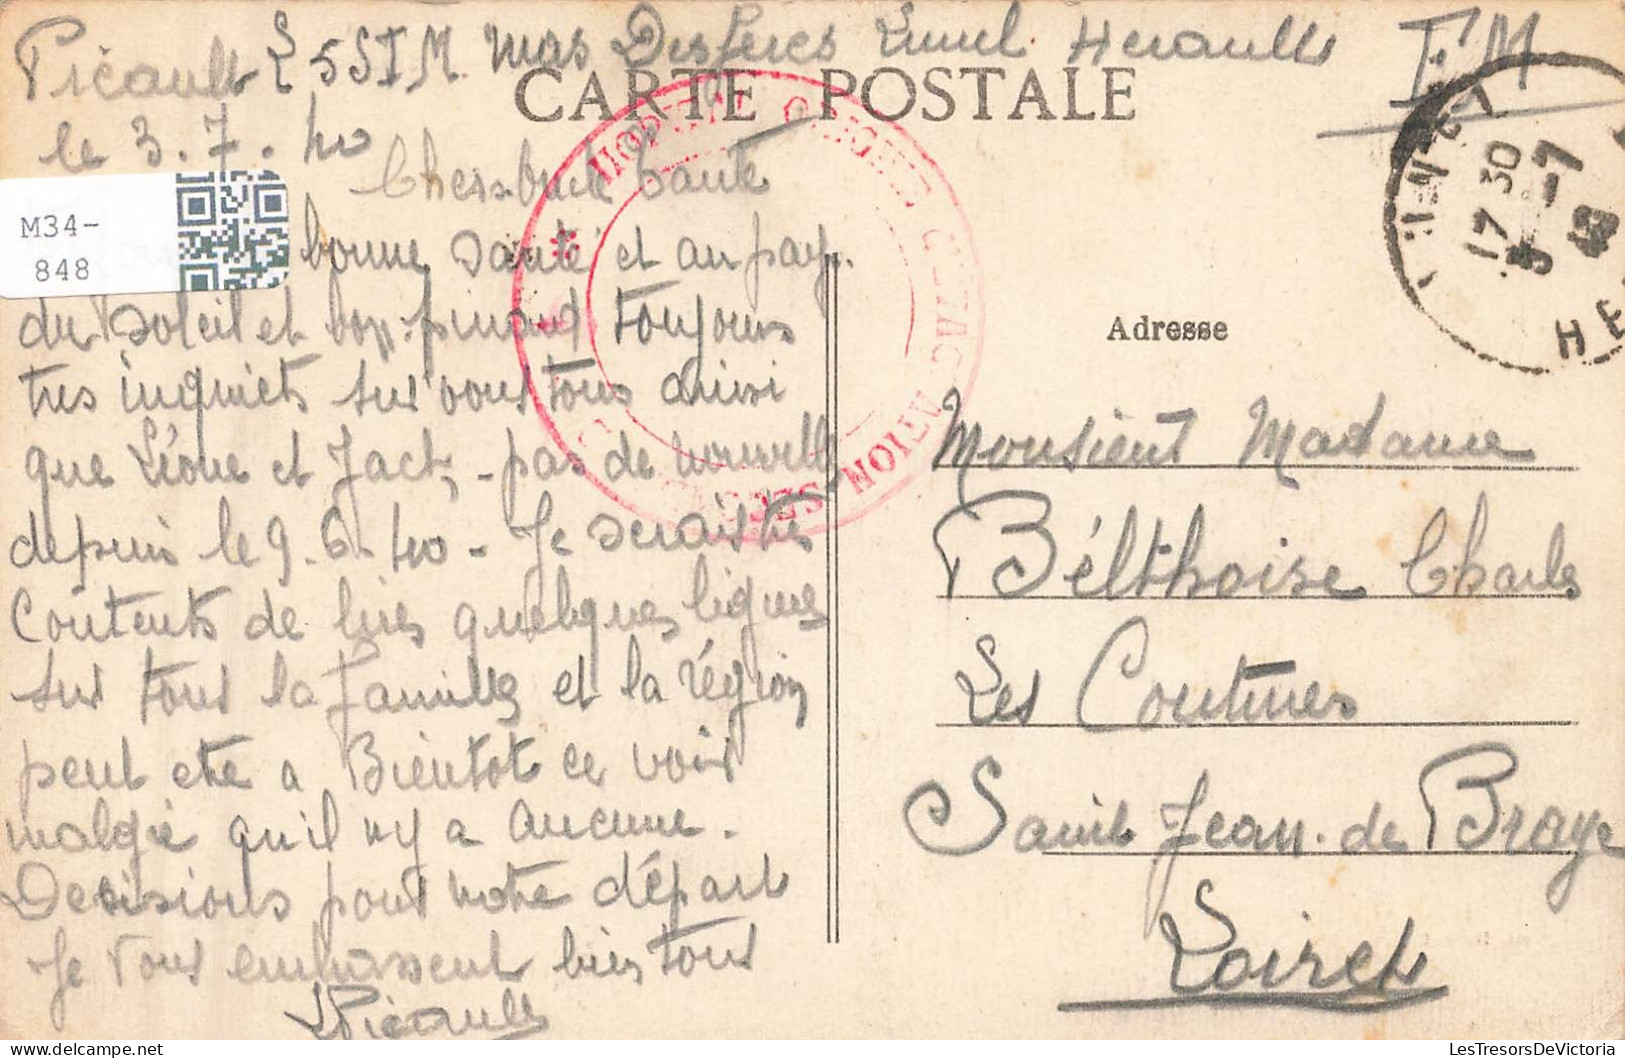 Picault S 5 S I M. mas Desferes Lunel Heraults F.M
CARTE POSTALE
le 3.7.40
Chers Oncle Tante
M34-
848
bonne santé et au pays
du soleil et bon pinard toujours
très inquiets sur vous tous ainsi
que Léone et Jack, - pas de nouvelle
depuis le 9.6.40 - Je serais très
Contents de lires quelques lignes
sur tous la familles et la région
peut etre a Bientot ce voir
malgré qu'il ny a aucune.
Decisions pour notre départ
Je vous embrassent bien tous
Picault
HOPITAL
17 30
3-7
HE
Adresse
Monsieur Madame
Bélthoise Charles
Les Coutures
Saint Jean. de Braye
Loiret
LesTresorsDeVictoria